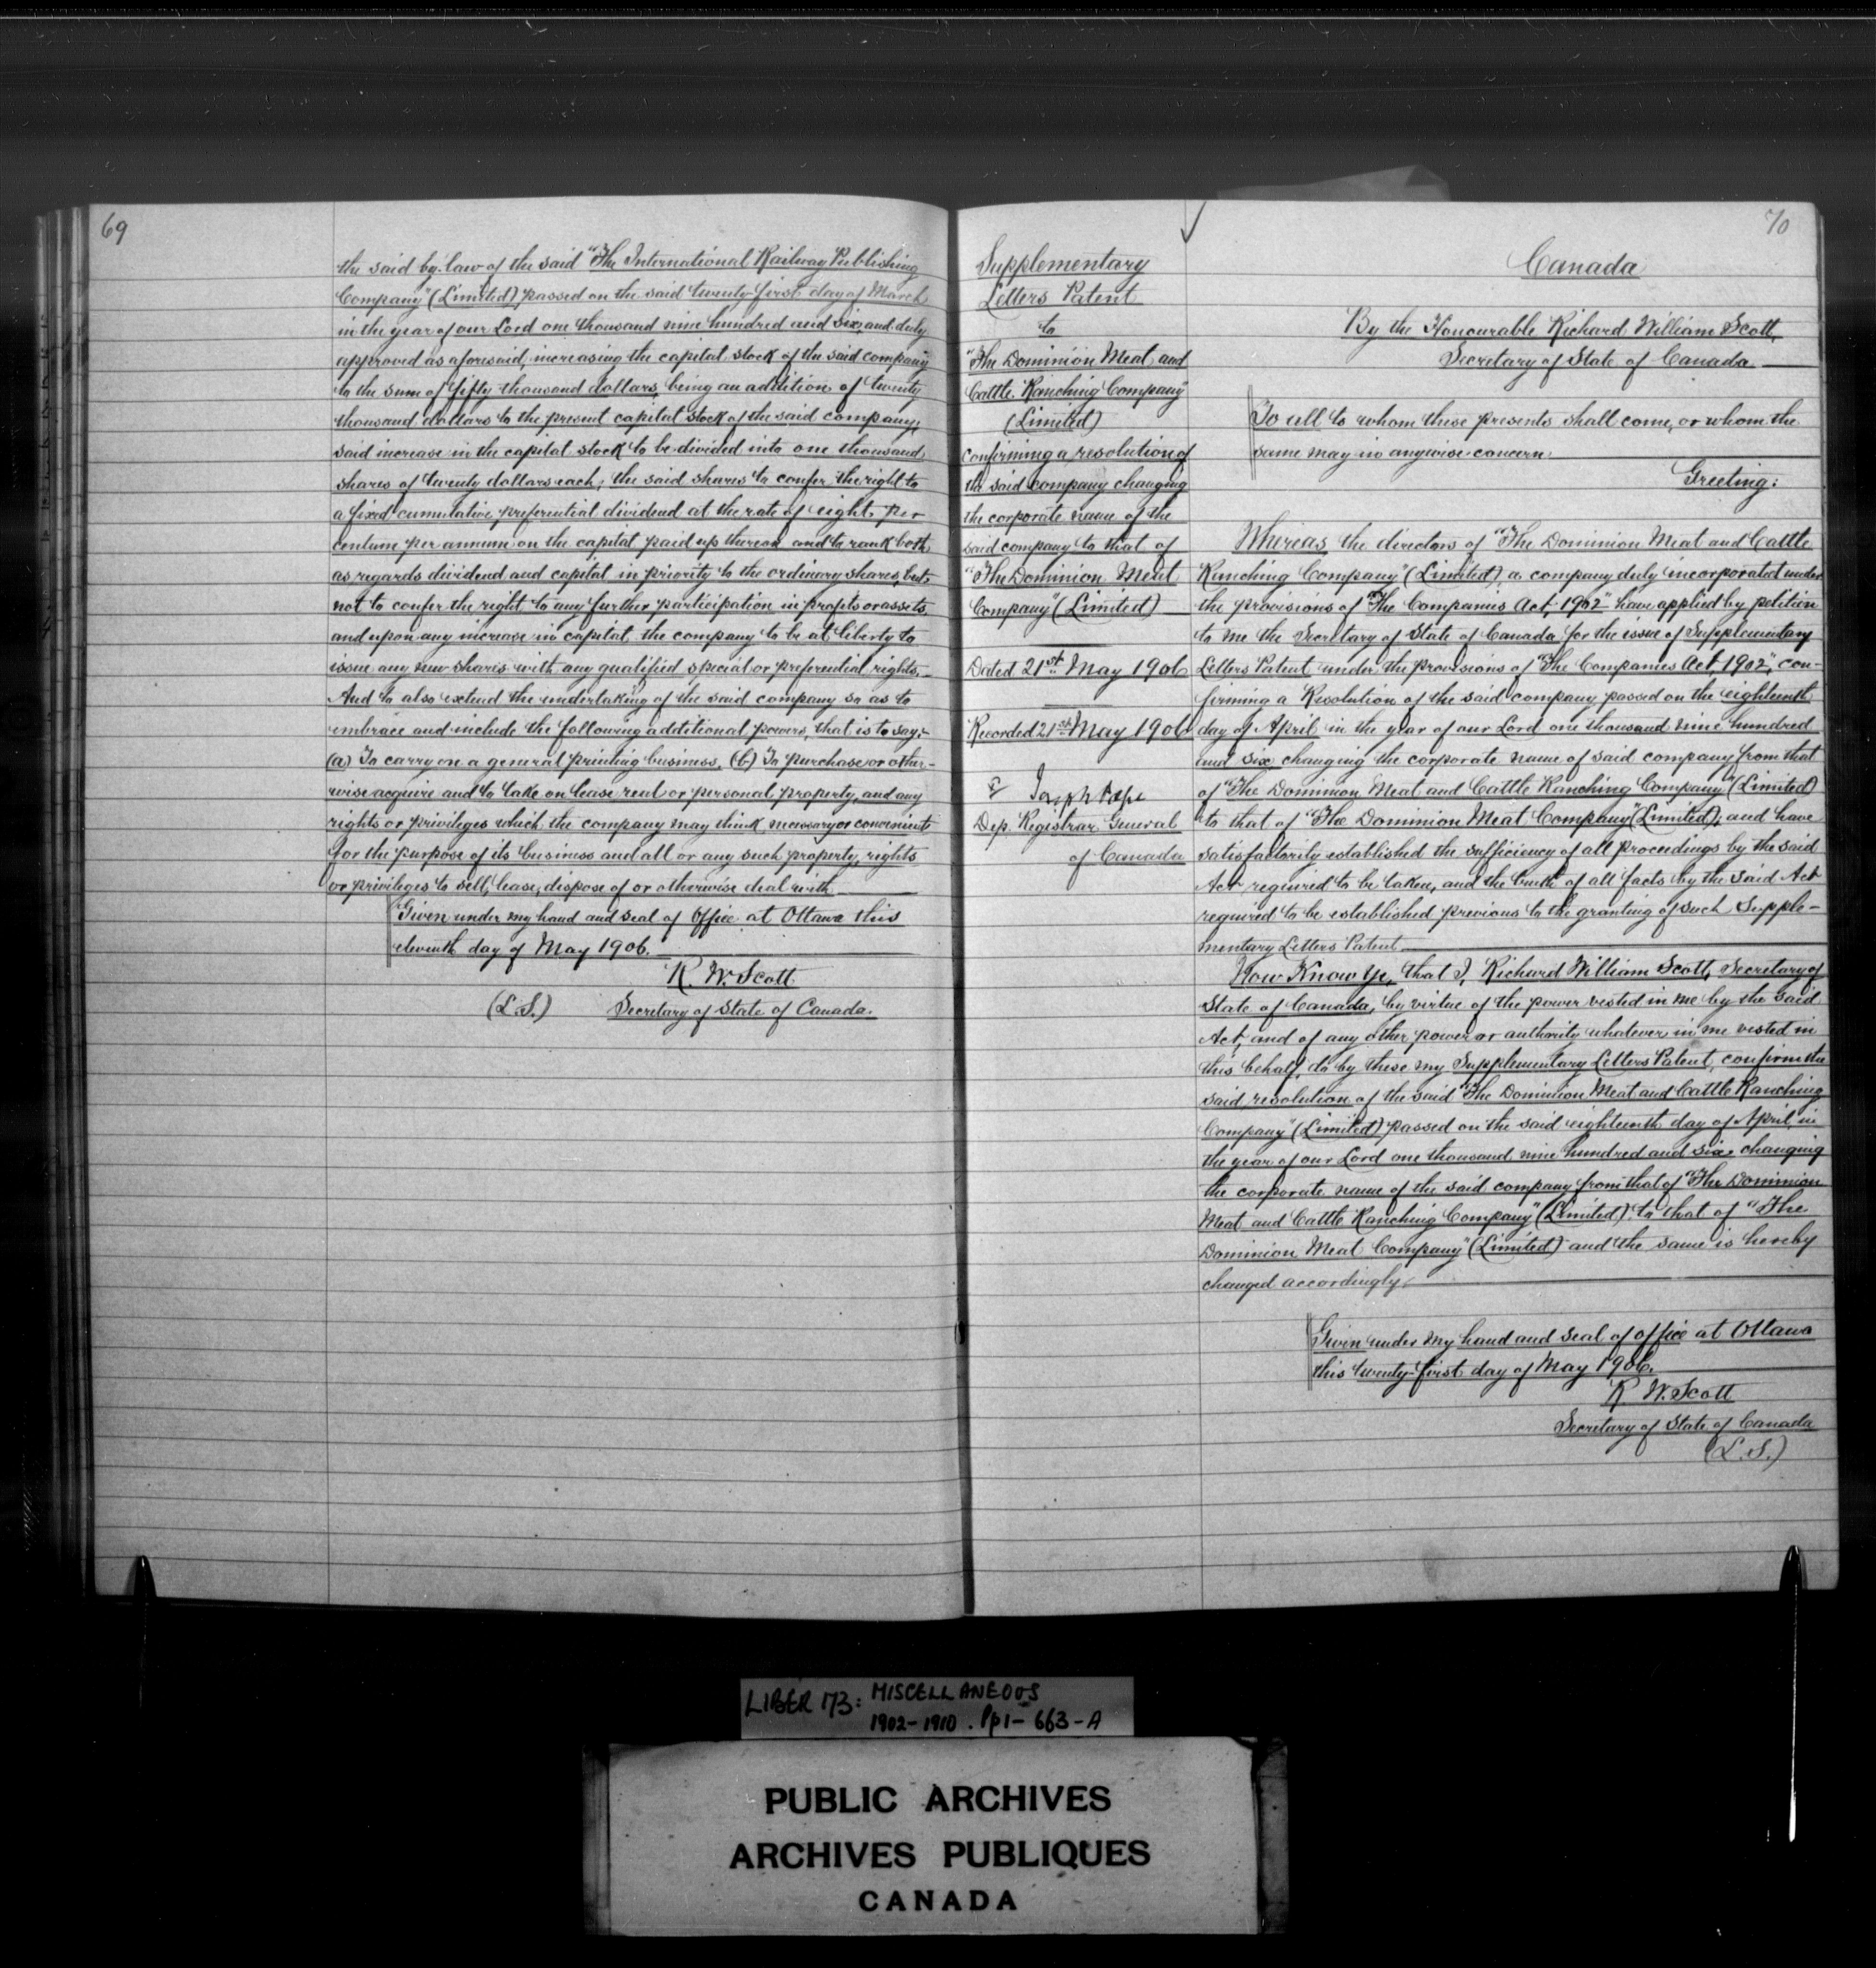 69
the said by-law of the said "The International Railway Publishing
Company" (Limited) passed on the said twenty-first day of March
in the year of our Lord one thousand nine hundred and six, and duly
approved as aforesaid, increasing the capital stock of the said company
to the sum of fifty thousand dollars, being an addition of twenty
thousand dollars to the present capital stock of the said company,
said increase in the capital stock to be divided into one thousand
shares of twenty dollars each, the said shares to confer the right to
a fixed cumulative preferential dividend at the rate of eight per
centum per annum on the capital paid up thereon and to rank both
as regards dividend and capital in priority to the ordinary shares, but
not to confer the right to any further participation in profits or assets,
and upon any increase in capital the company to be at liberty to
issue any new shares with any qualified special or preferential rights.
And to also extend the undertaking of the said company so as to
embrace and include the following additional powers, that is to say,
(a) To carry on a general printing business. (b) To purchase or other-
wise acquire and to take on lease real or personal property, and any
rights or privileges which the company may think necessary or convenient
for the purpose of its business and all or any such property, rights
or privileges to sell, lease, dispose of or otherwise deal with
Given under my hand and seal of Office at Ottawa this
eleventh day of May 1906.
R. W. Scott
(L.S.) Secretary of State of Canada.
70
Supplementary
Letters Patent
to
"The Dominion Meat and
Cattle Ranching Company"
(Limited)
confirming a resolution of
the said company changing
the corporate name of the
said company to that of
"The Dominion Meat
Company" (Limited)
Dated 21st May 1906
Recorded 21st May 1906
Joseph Pope
Dep. Registrar General
of Canada
Canada
By the Honourable Richard William Scott,
Secretary of State of Canada
To all to whom these presents shall come, or whom the
same may in anywise concern.
Greeting:
Whereas, the directors of "The Dominion Meat and Cattle
Ranching Company" (Limited) a company duly incorporated under
the provisions of "The Companies Act, 1902" have applied by petition
to me the Secretary of State of Canada for the issue of Supplementary
Letters Patent under the provisions of "The Companies Act, 1902", con-
firming a Resolution of the said company passed on the eighteenth
day of April in the year of our Lord one thousand nine hundred
and six changing the corporate name of said company from that
of "The Dominion Meat and Cattle Ranching Company" (Limited)
to that of "The Dominion Meat Company" (Limited); and have
satisfactorily established the sufficiency of all proceedings by the said
Act required to be taken, and the truth of all facts by the said Act
required to be established previous to the granting of such Supple-
mentary Letters Patent
Now Know Ye, that I, Richard William Scott, Secretary of
State of Canada, by virtue of the power vested in me by the said
Act, and of any other power or authority whatever in me vested in
this behalf, do by these my Supplementary Letters Patent, confirm the
said resolution of the said "The Dominion Meat and Cattle Ranching
Company" (Limited) passed on the said eighteenth day of April, in
the year of our Lord one thousand nine hundred and six changing
the corporate name of the said company from that of "The Dominion
Meat and Cattle Ranching Company" (Limited) to that of "The
Dominion Meat Company" (Limited) and the same is hereby
changed accordingly.
Given under my hand and seal of office at Ottawa
this twenty-first day of May 1906.
R. W. Scott
Secretary of State of Canada
(L.S.)
LIBER 173: MISCELLANEOUS
1902-1910. Pp 1-663-A
PUBLIC ARCHIVES
ARCHIVES PUBLIQUES
CANADA